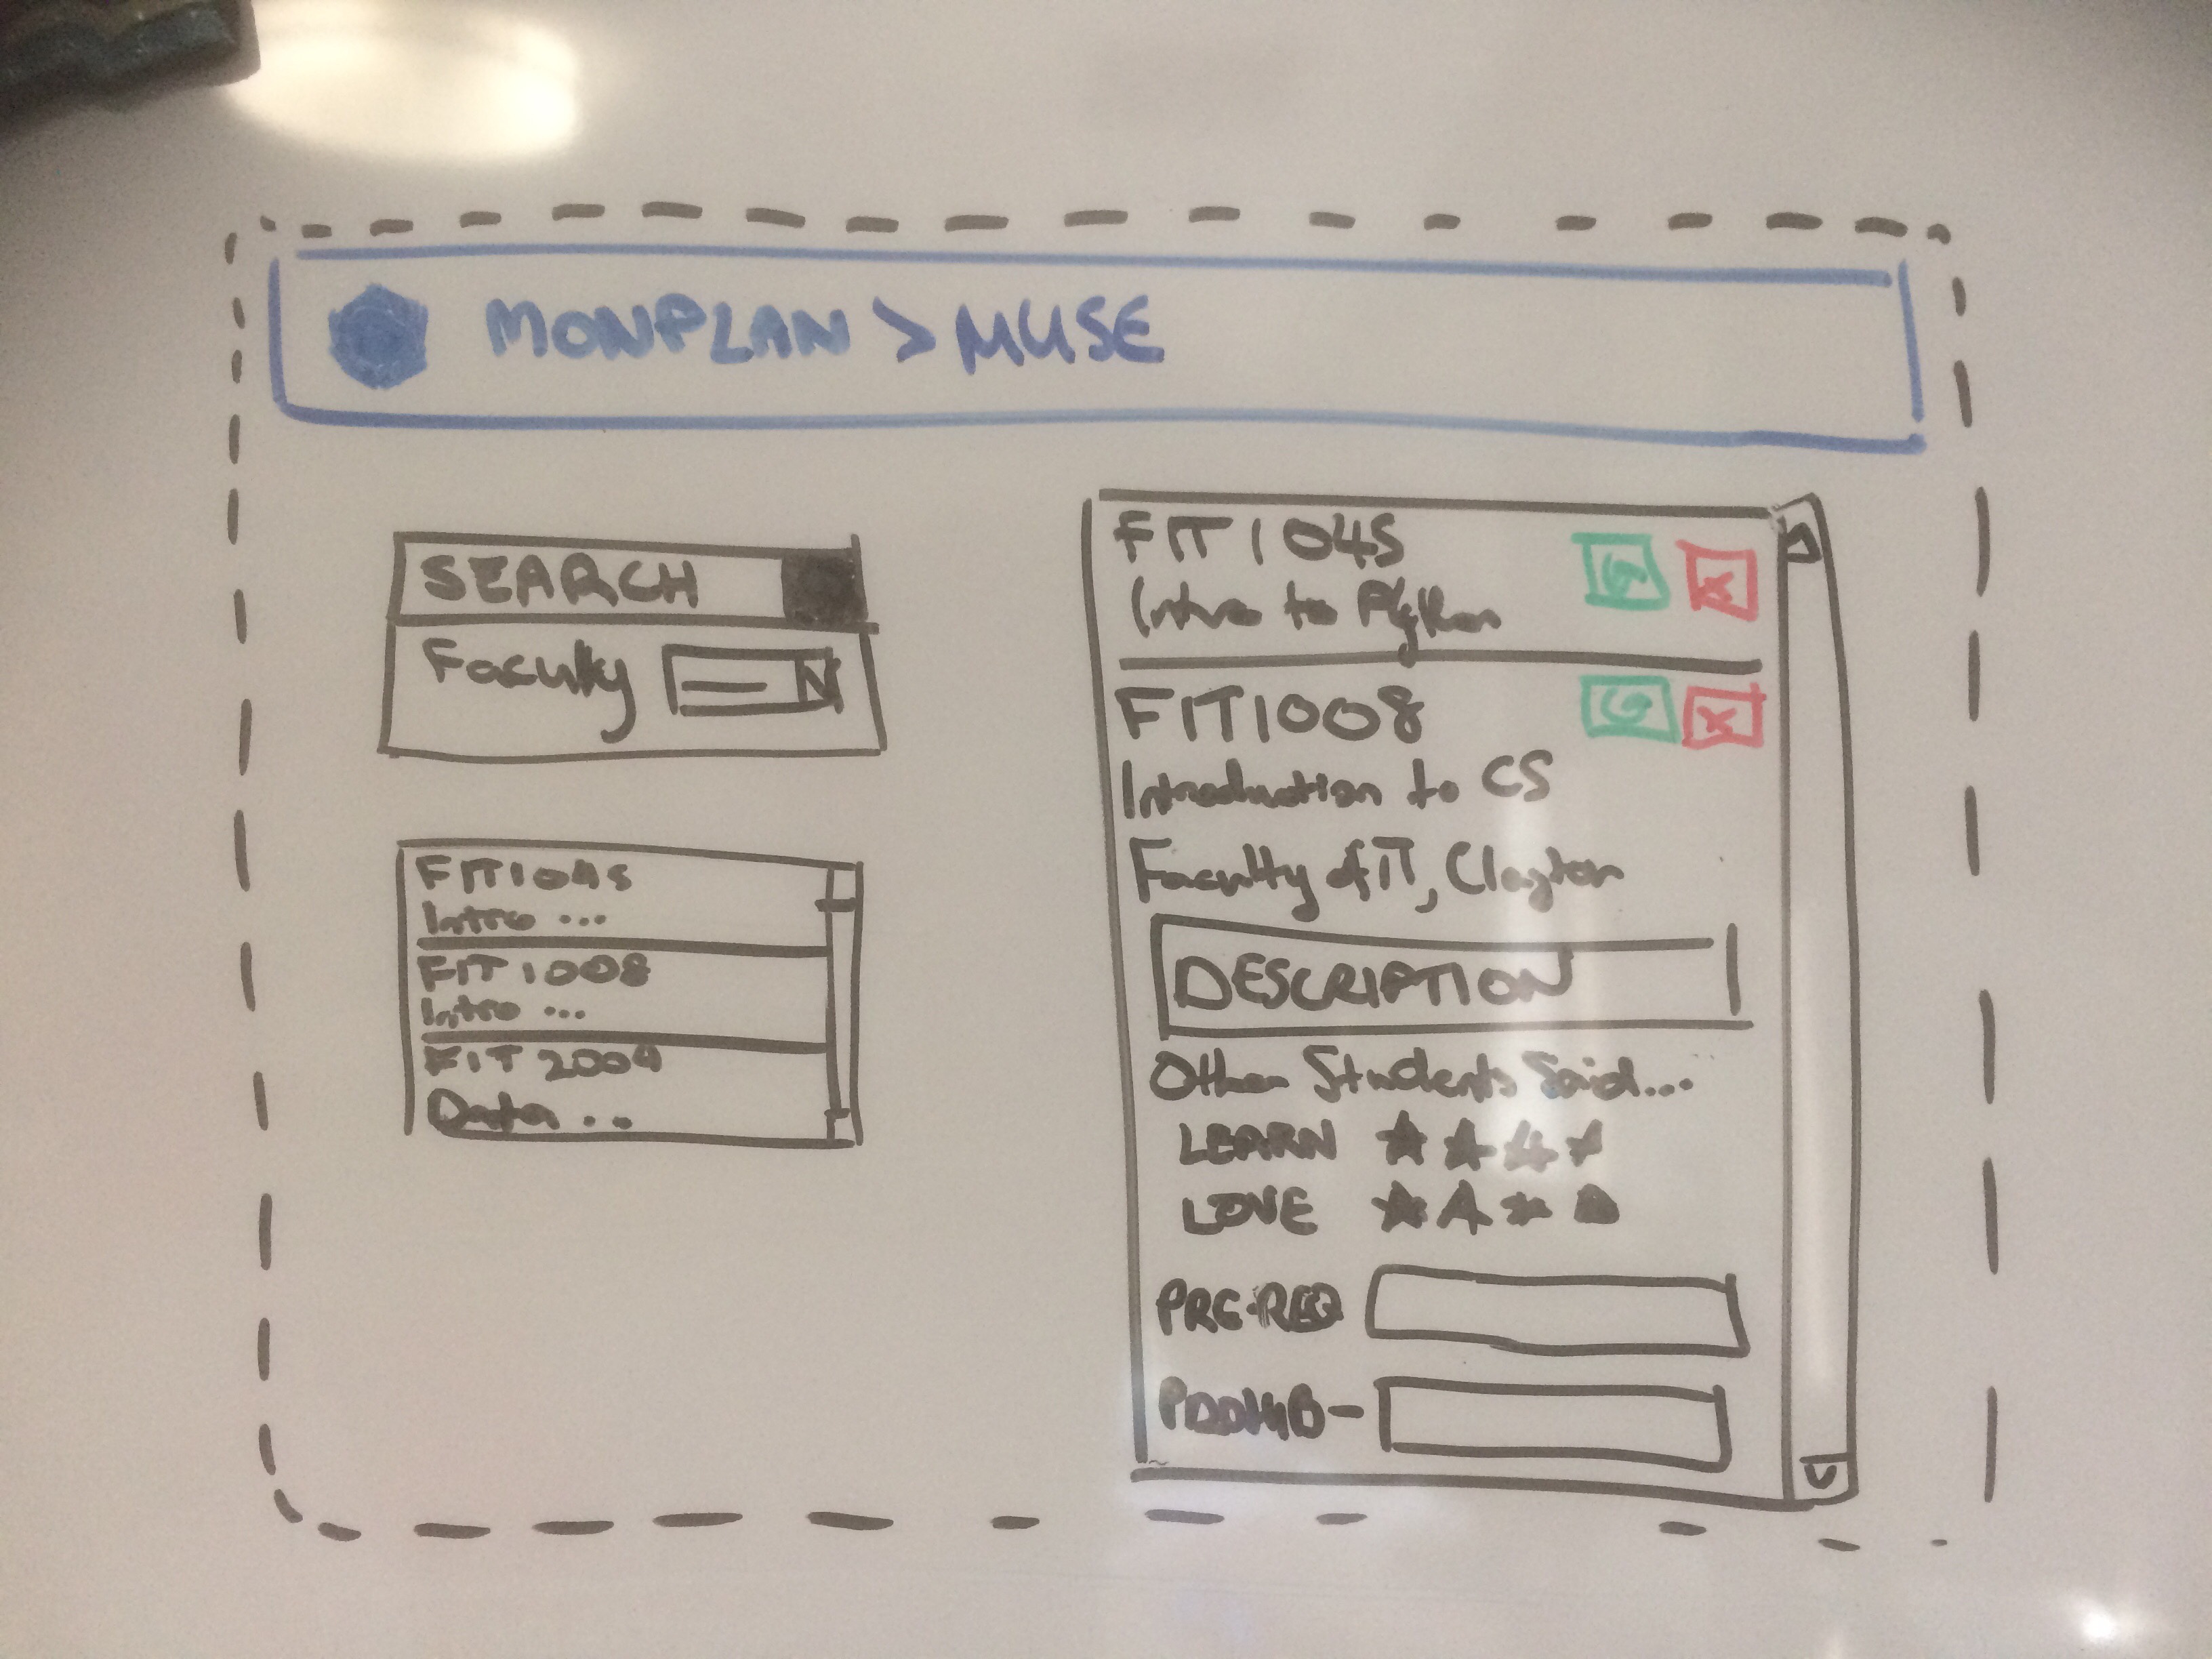 MONPLAN > MUSE
SEARCH
Faculty
FIT1045
Intro ...
FIT1008
Intro ...
FIT2004
Data ..
FIT1045
Intro to Python
G X
FIT1008
G X
Introduction to CS
Faculty of IT, Clayton
DESCRIPTION
Other Students Said...
LEARN ★★★★
LOVE ★★★★
PRE-REQ
PROHIB-